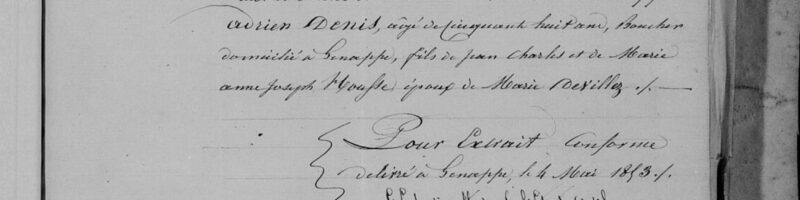 adrien Denis, agé de Cinquant huit ans, Boucher
domicilié à Genappe, fils de Jean Charles et de Marie
anne Joseph Housse époux de Marie Devillez ./.
Pour Extrait Conforme
délivré à Genappe, le 4 Mai 1853 ./.